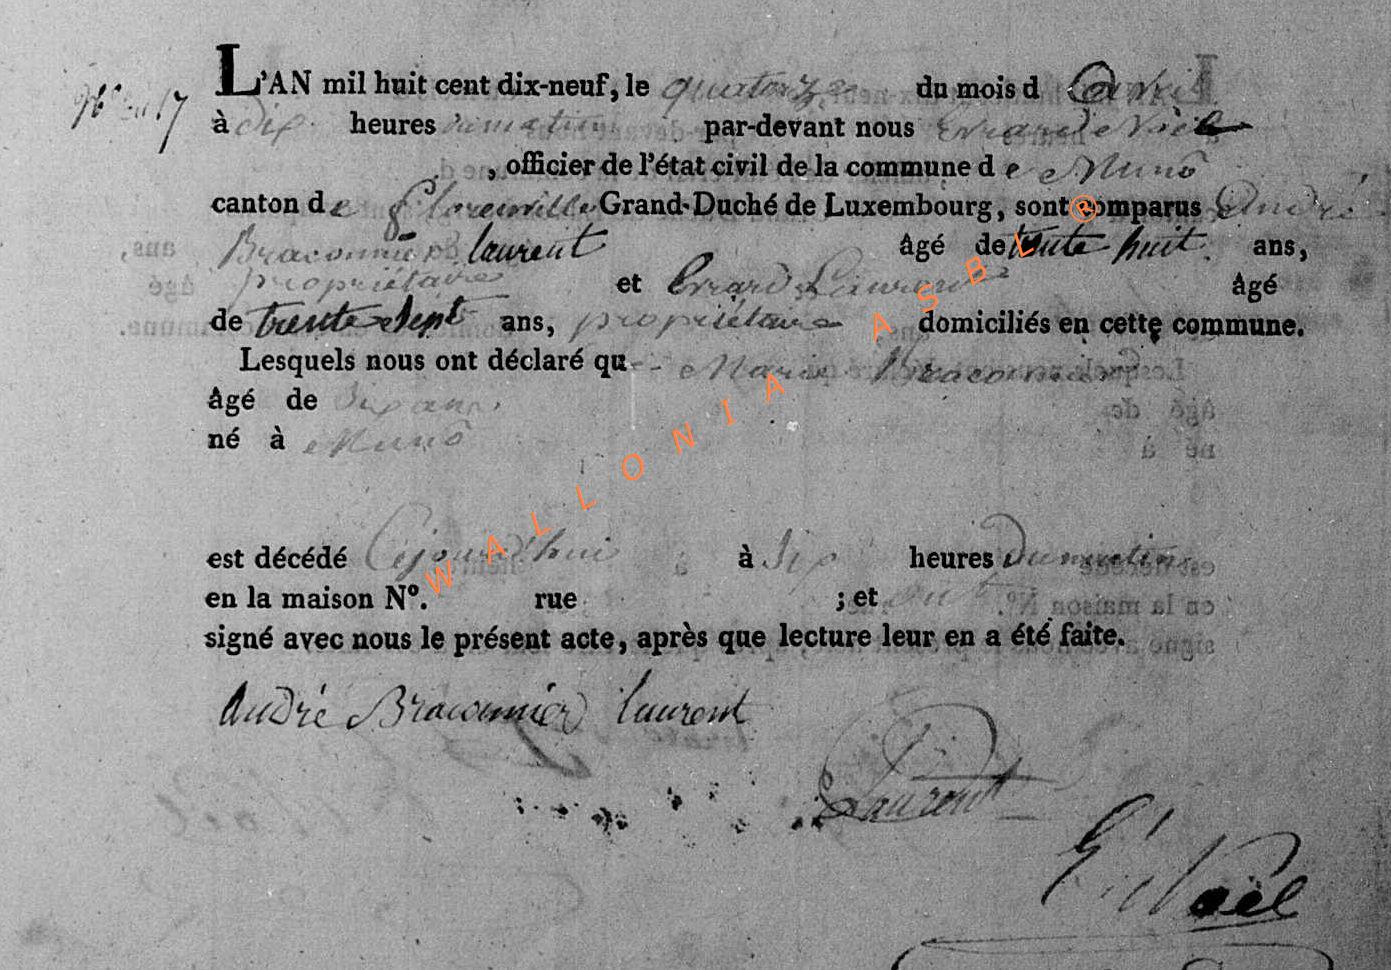 L'AN mil huit cent dix-neuf, le quatorze du mois d avril
à dix heures du matin par-devant nous Errard Noël
, officier de l'état civil de la commune d e Muno
canton d e Florenville Grand-Duché de Luxembourg, sont comparus André
Braconnier laurent âgé de trente huit ans,
propriétaire et Errard Laurent âgé
de trente Sept ans, propriétaire domiciliés en cette commune.
Lesquels nous ont déclaré qu Marie Braconnier
âgé de Six ans,
né à Muno
est décédé Cejourd'hui à Six heures Du matin
en la maison Nº. rue ; et ont
signé avec nous le présent acte, après que lecture leur en a été faite.
André Braconnier laurent
Laurent
Noël
® WALLONIA ASBL